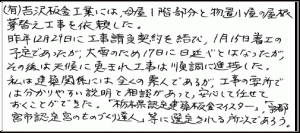 (有)古沢板金工業には、母屋1階部分と物置小屋の屋根
葺替え工事を依頼した。
昨年12月29日に工事請負契約を結び、1月15日着工の
予定であったが、大雪のため17日に日延べとはなったが、
その後は天候に恵まれ工事は順調に進捗した。
私は建築関係には全くの素人であるが、工事の要所で
は分かりやすい説明と相談があって、安心して任せて
おくことができた。「栃木県認定建築板金マイスター」、「宇都
宮市認定宮のものづくり達人」等に選定される所以であろう。